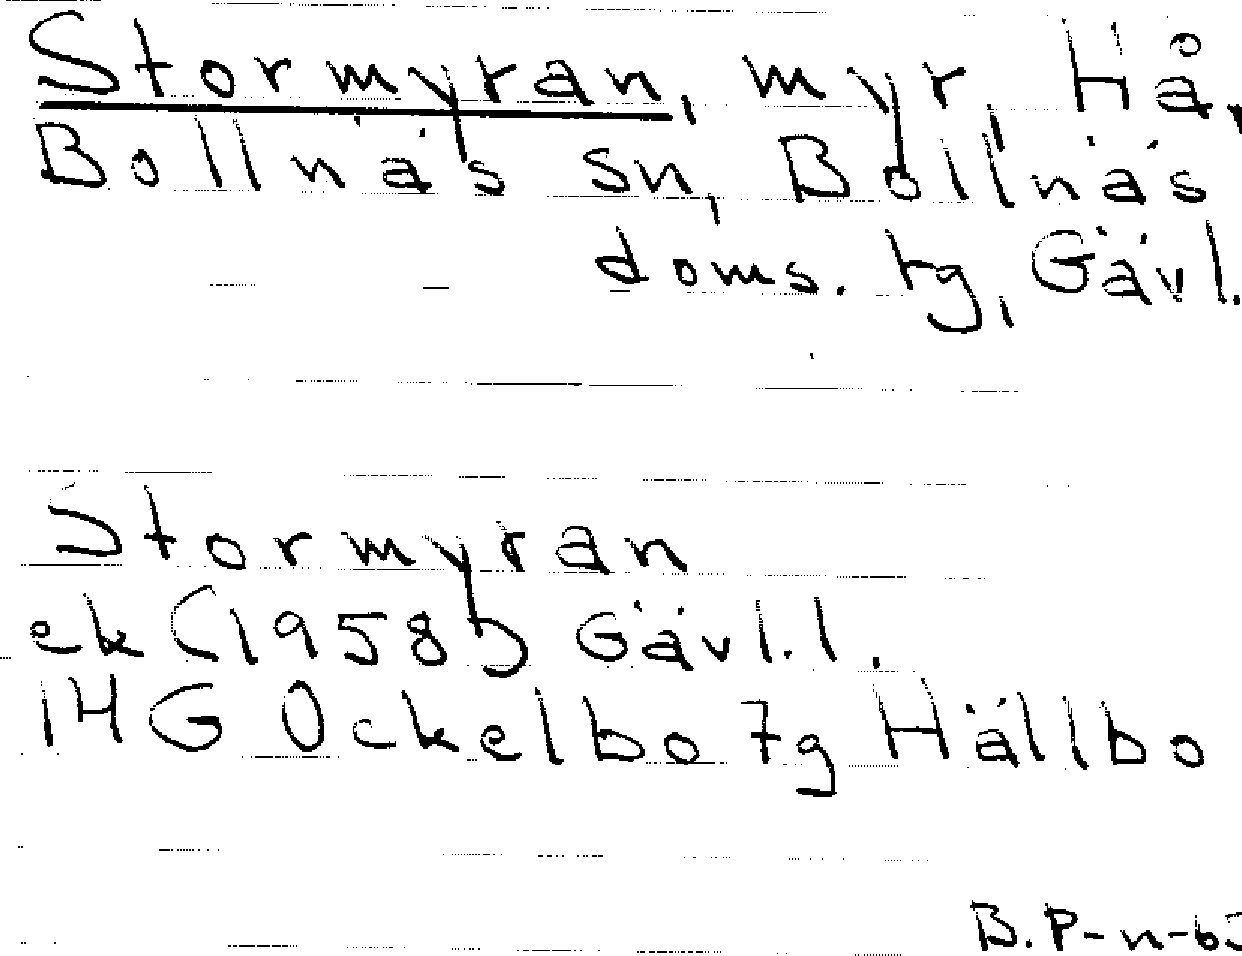 Stormyran, myr, Hå,
Bollnäs sn, Bollnäs
doms. tg, Gävl.
Stormyran
ek (1958) Gävl.l.
14G Ockelbo 7g Hällbo
B.P-n-65